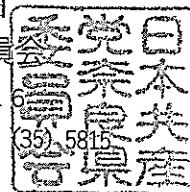 日本共産
党奈良県
委員会
員会
6
(35) 5815